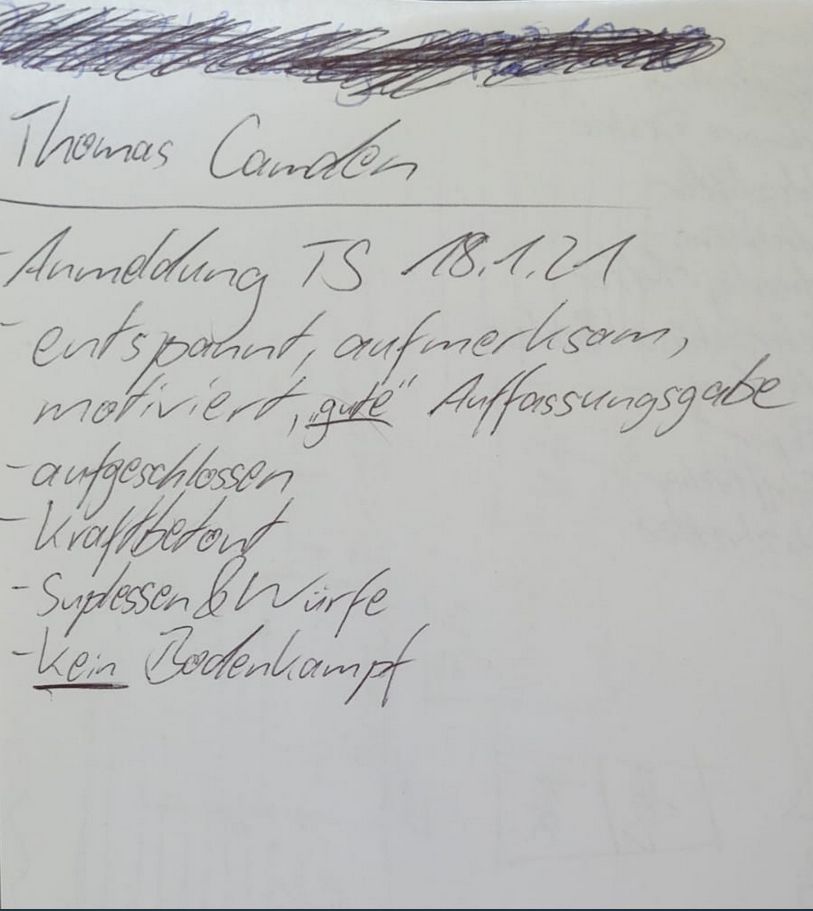 Thomas Camden
- Anmeldung TS 18.1.21
- entspannt, aufmerksam,
motiviert, „gute“ Auffassungsgabe
- aufgeschlossen
- kraftbetont
- Suplessen & Würfe
- kein Bodenkampf